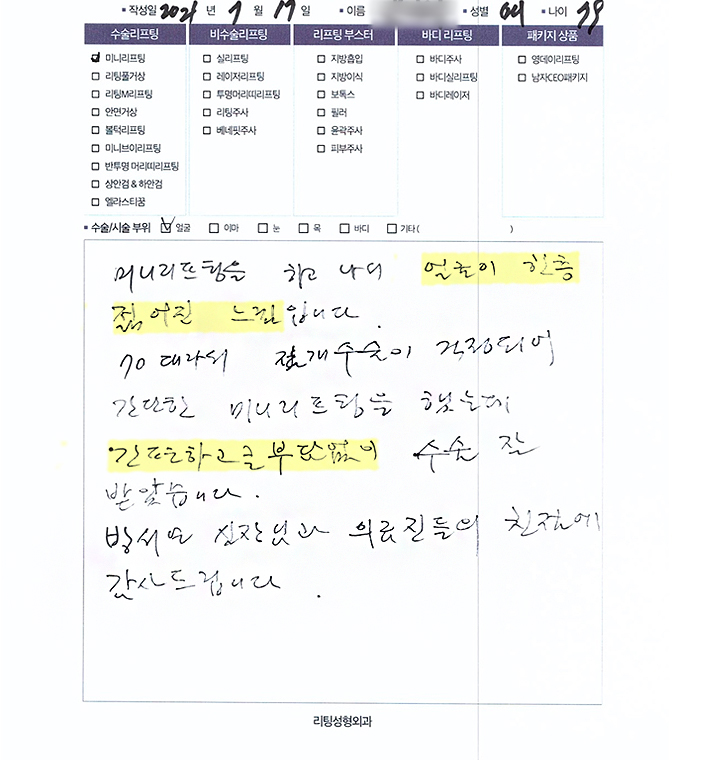 ▪ 작성일 2021 년 7 월 17 일 ▪ 이름 ▪ 성별 여 ▪ 나이 79
수술리프팅 비수술리프팅 리프팅 부스터 바디 리프팅 패키지 상품
☑ 미니리프팅 ☐ 실리프팅 ☐ 지방흡입 ☐ 바디주사 ☐ 영데이리프팅
☐ 리팅풀거상 ☐ 레이저리프팅 ☐ 지방이식 ☐ 바디실리프팅 ☐ 남자CEO패키지
☐ 리팅M리프팅 ☐ 투명머리띠리프팅 ☐ 보톡스 ☐ 바디레이저
☐ 안면거상 ☐ 리팅주사 ☐ 필러
☐ 볼턱리프팅 ☐ 베네핏주사 ☐ 윤곽주사
☐ 미니브이리프팅 ☐ 피부주사
☐ 반투명 머리띠리프팅
☐ 상안검 & 하안검
☐ 엘라스티꿈
▪ 수술/시술 부위 ☑ 얼굴 ☐ 이마 ☐ 눈 ☐ 목 ☐ 바디 ☐ 기타( )
미니리프팅을 하고 나니 얼굴이 한층
젊어진 느낌입니다.
70대라서 절개수술이 걱정되어
간단한 미니리프팅을 했는데
간편하고 부담없이 수술 잘
받았습니다.
실장님과 의료진들의 친절에
감사드립니다.
리팅성형외과